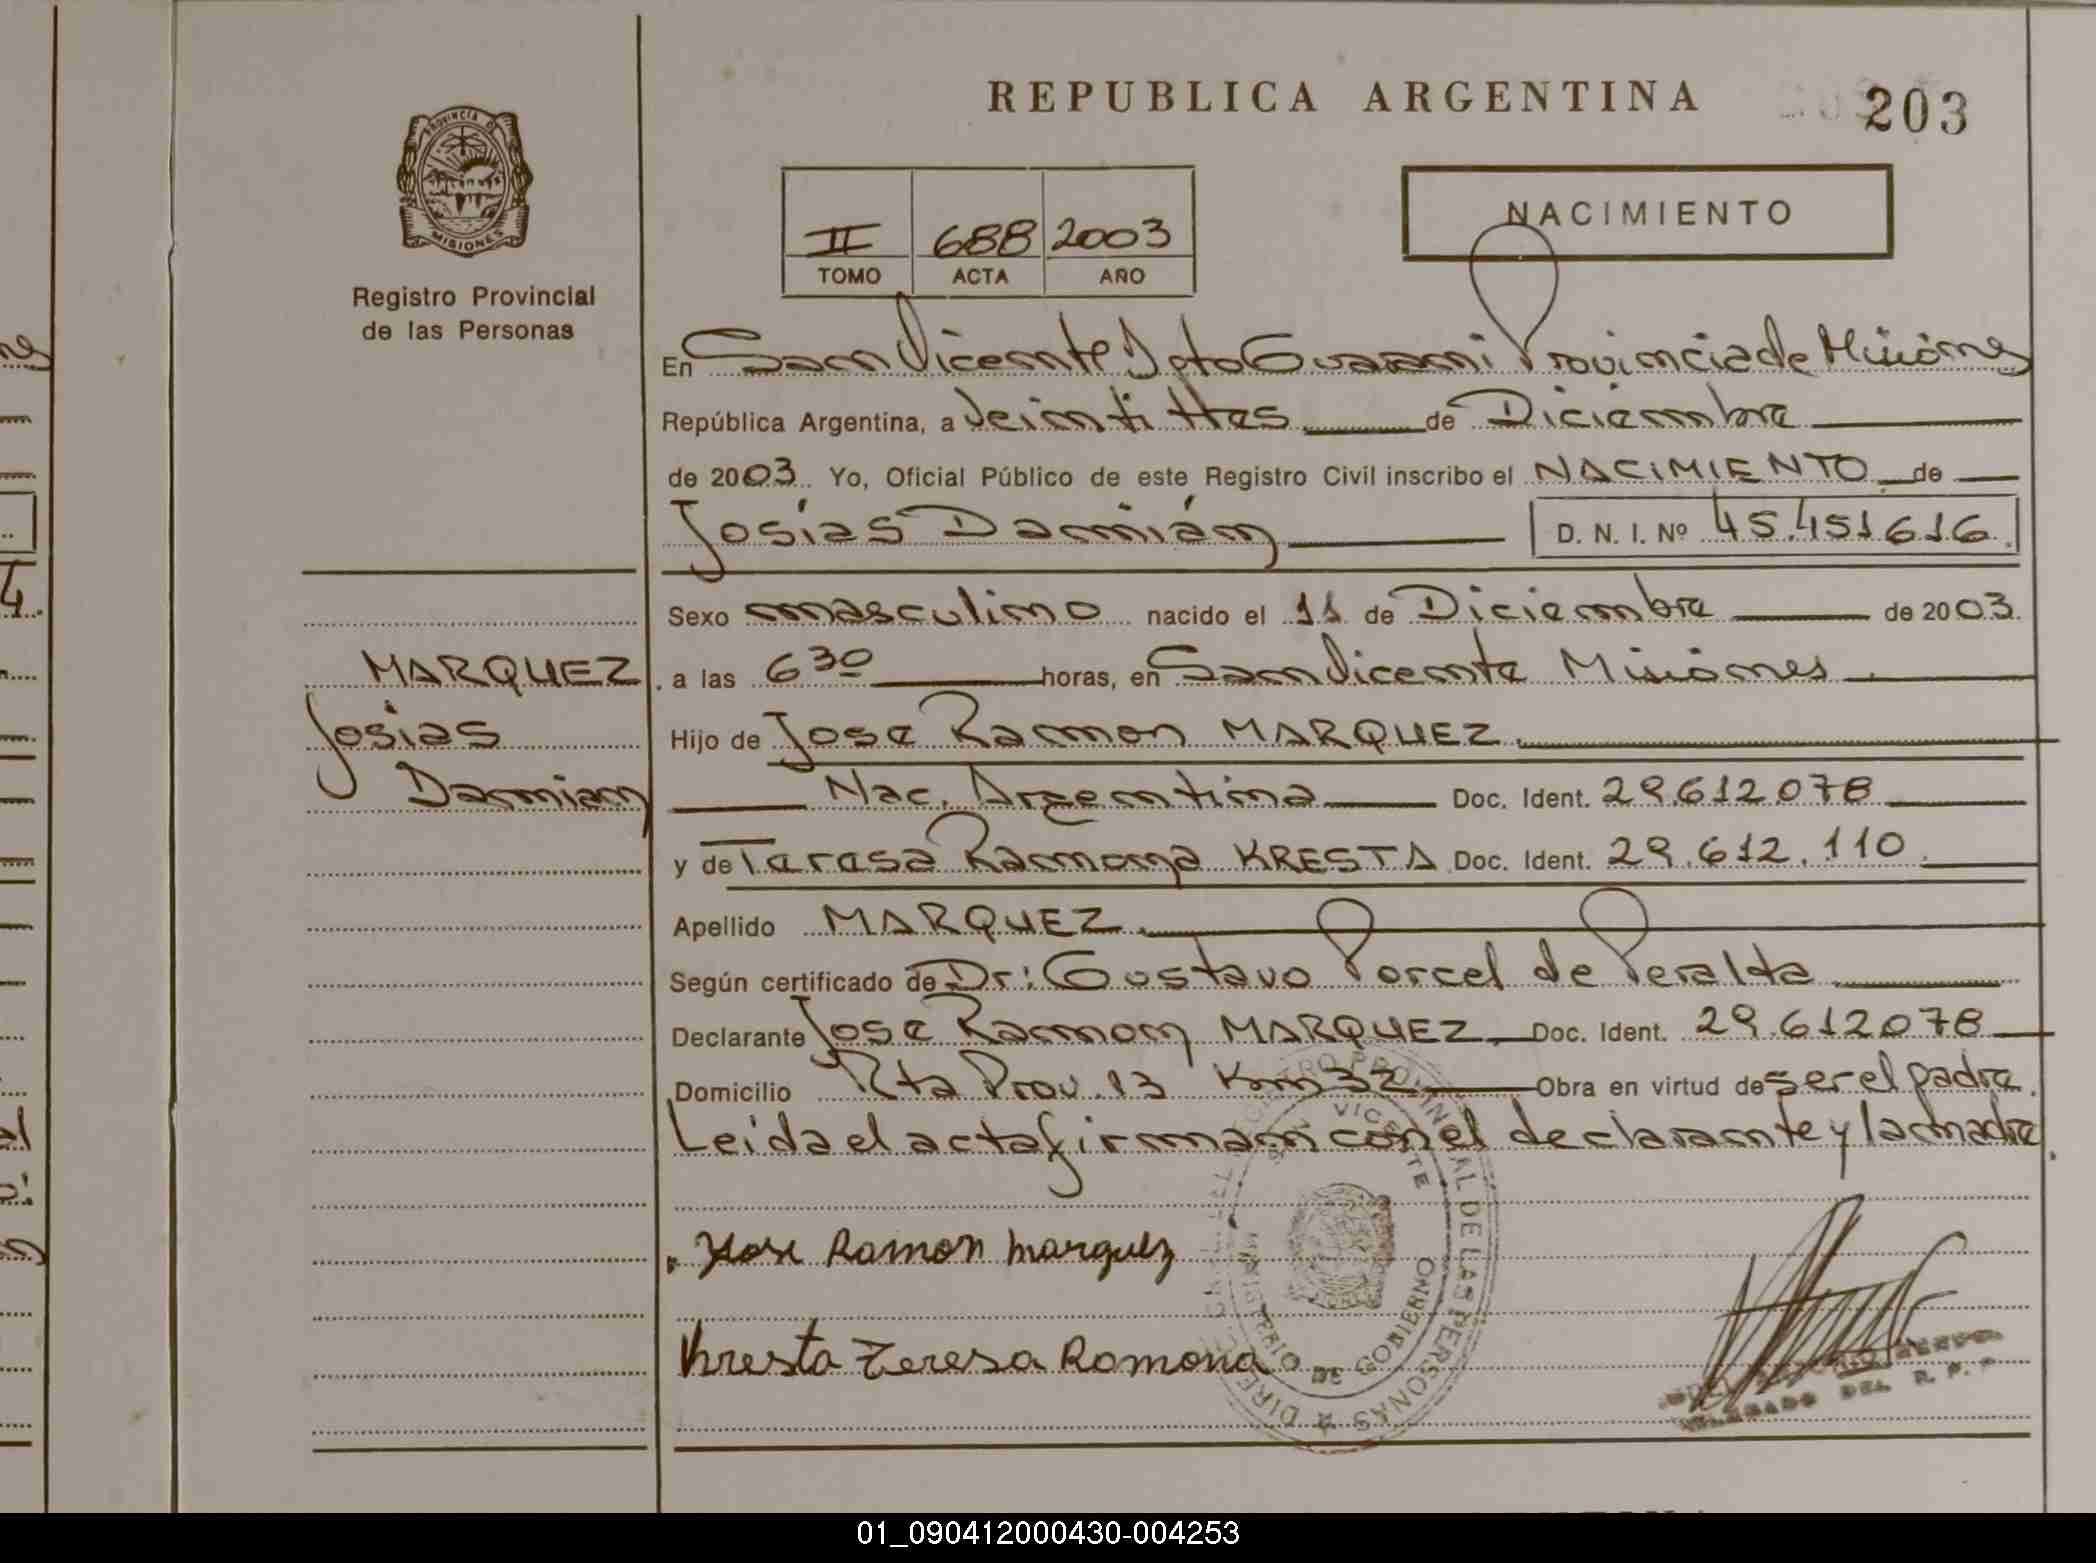 REPUBLICA ARGENTINA 203
PROVINCIA DE
MISIONES
Registro Provincial
de las Personas
II 688 2003
TOMO ACTA AÑO
NACIMIENTO
En San Vicente Dpto Guarani Provincia de Misiones
República Argentina, a Veinti tres de Diciembre
de 2003. Yo, Oficial Público de este Registro Civil inscribo el NACIMIENTO de
Josías Damián D. N. I. Nº 45.451616.
Sexo masculino nacido el 11 de Diciembre de 2003.
MARQUEZ
Josias
Damian
a las 6 30 horas, en San Vicente Misiones
Hijo de Jose Ramon MARQUEZ
Nac. Argentina Doc. Ident. 29.612078
y de Teresa Ramona KRESTA Doc. Ident. 29.612.110
Apellido MARQUEZ
Según certificado de Dr: Gustavo Porcel de Peralta
Declarante Jose Ramon MARQUEZ Doc. Ident. 29.612078
Domicilio Rta Prov. 13 Km 32 Obra en virtud de ser el padre.
Leida el acta firman con el declarante y la madre.
Jose Ramon Marquez
Kresta Teresa Ramona
REGISTRO PROVINCIAL DE LAS PERSONAS
SAN VICENTE
MINISTERIO DE GOBIERNO
DELEGADO DEL R. P. P.
01_090412000430-004253